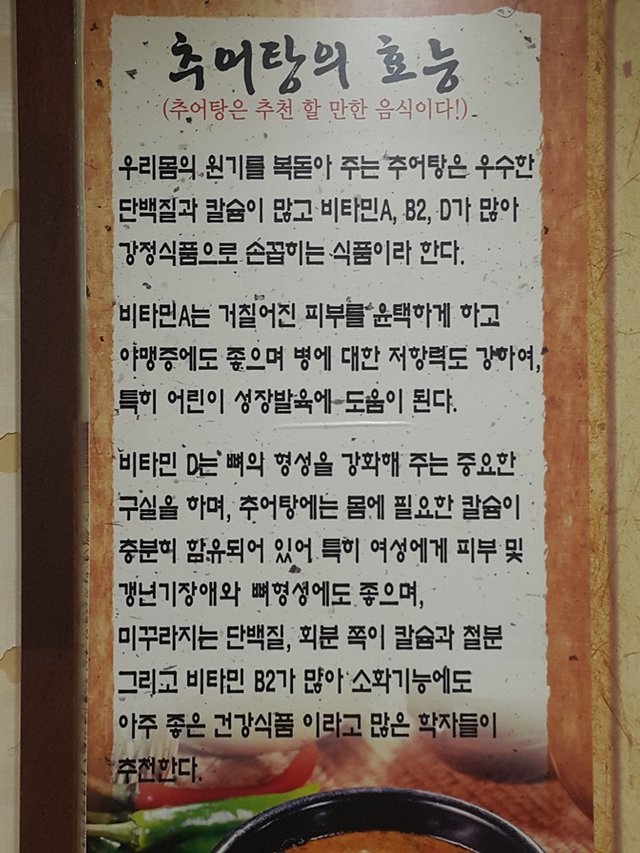 추어탕의 효능
(추어탕은 추천 할 만한 음식이다!)
우리몸의 원기를 복돋아 주는 추어탕은 우수한
단백질과 칼슘이 많고 비타민A, B2, D가 많아
강정식품으로 손꼽히는 식품이라 한다.
비타민A는 거칠어진 피부를 윤택하게 하고
야맹증에도 좋으며 병에 대한 저항력도 강하여,
특히 어린이 성장발육에 도움이 된다.
비타민 D는 뼈와 형성을 강화해 주는 중요한
구실을 하며, 추어탕에는 몸에 필요한 칼슘이
충분히 함유되어 있어 특히 여성에게 피부 및
갱년기장애와 뼈형성에도 좋으며,
미꾸라지는 단백질, 회분 쪽이 칼슘과 철분
그리고 비타민 B2가 많아 소화기능에도
아주 좋은 건강식품 이라고 많은 학자들이
추천한다.